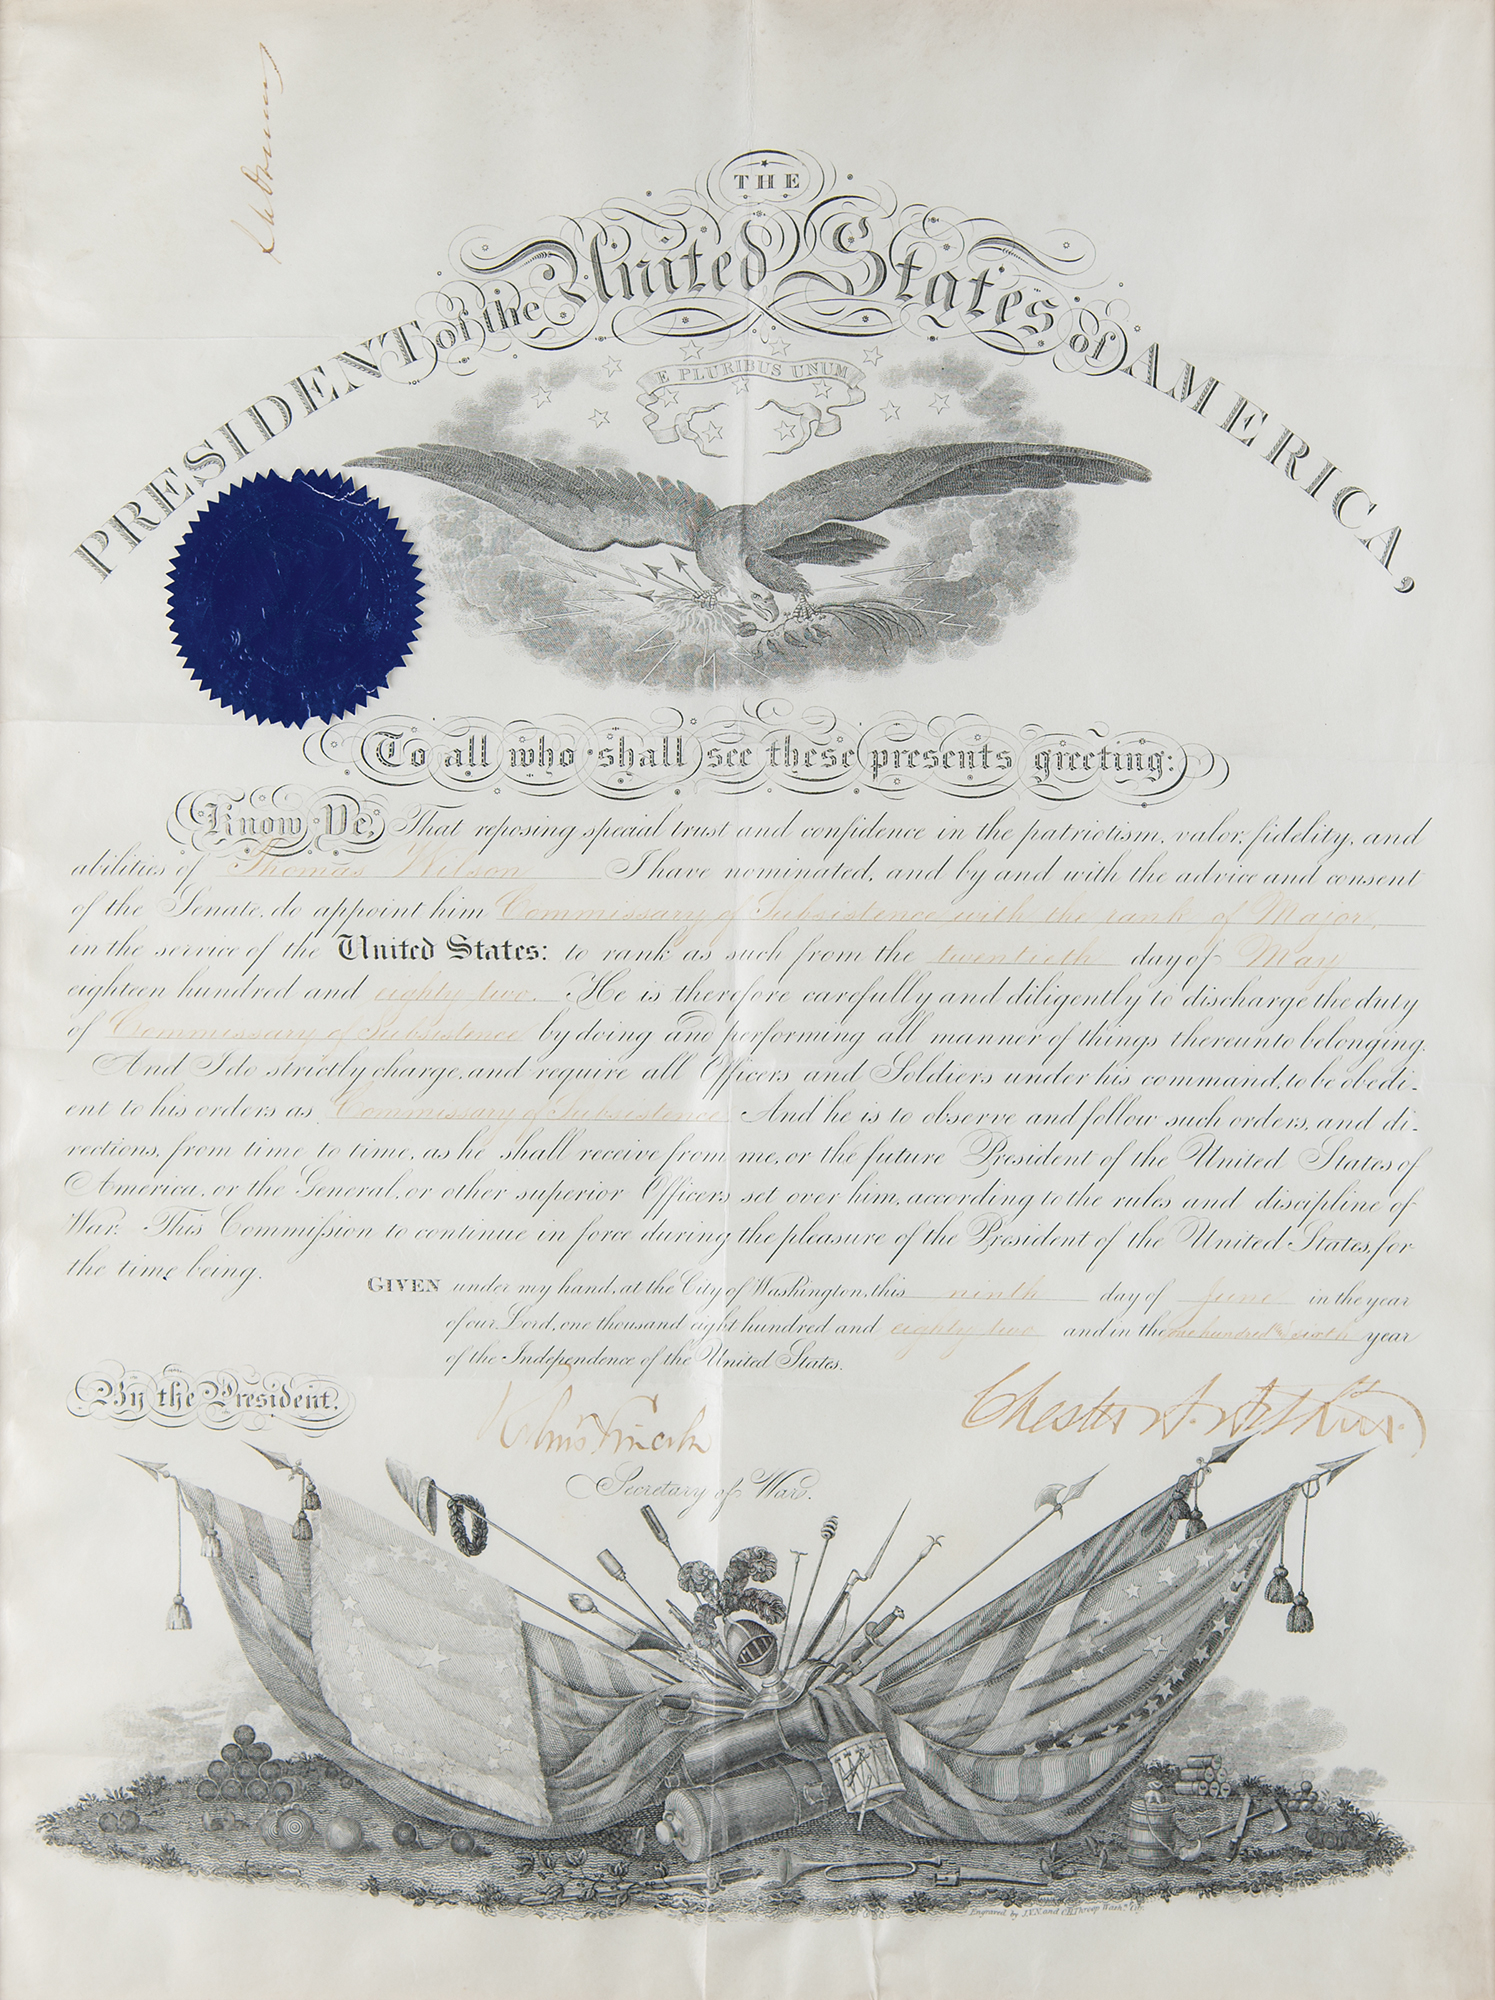 THE
PRESIDENT of the United States of AMERICA,
E PLURIBUS UNUM
To all who shall see these presents greeting:
Know Ye, That reposing special trust and confidence in the patriotism, valor, fidelity, and
abilities of Thomas Wilson I have nominated, and by and with the advice and consent
of the Senate, do appoint him Commissary of Subsistence, with the rank of Major,
in the service of the United States: to rank as such from the twentieth day of May
eighteen hundred and eighty two. He is therefore carefully and diligently to discharge the duty
of Commissary of Subsistence by doing and performing all manner of things thereunto belonging.
And I do strictly charge, and require all Officers and Soldiers under his command, to be obedi-
ent to his orders as Commissary of Subsistence And he is to observe and follow such orders, and di-
rections, from time to time, as he shall receive from me, or the future President of the United States of
America, or the General, or other superior Officers set over him, according to the rules and discipline of
War. This Commission to continue in force during the pleasure of the President of the United States, for
the time being.
GIVEN under my hand, at the City of Washington, this ninth day of June in the year
of our Lord, one thousand eight hundred and eighty two and in the one hundred & sixth year
of the Independence of the United States.
By the President.
Chester A. Arthur
Secretary of War.
Engraved by J.V.N. and O.H. Throop Wash.n City.